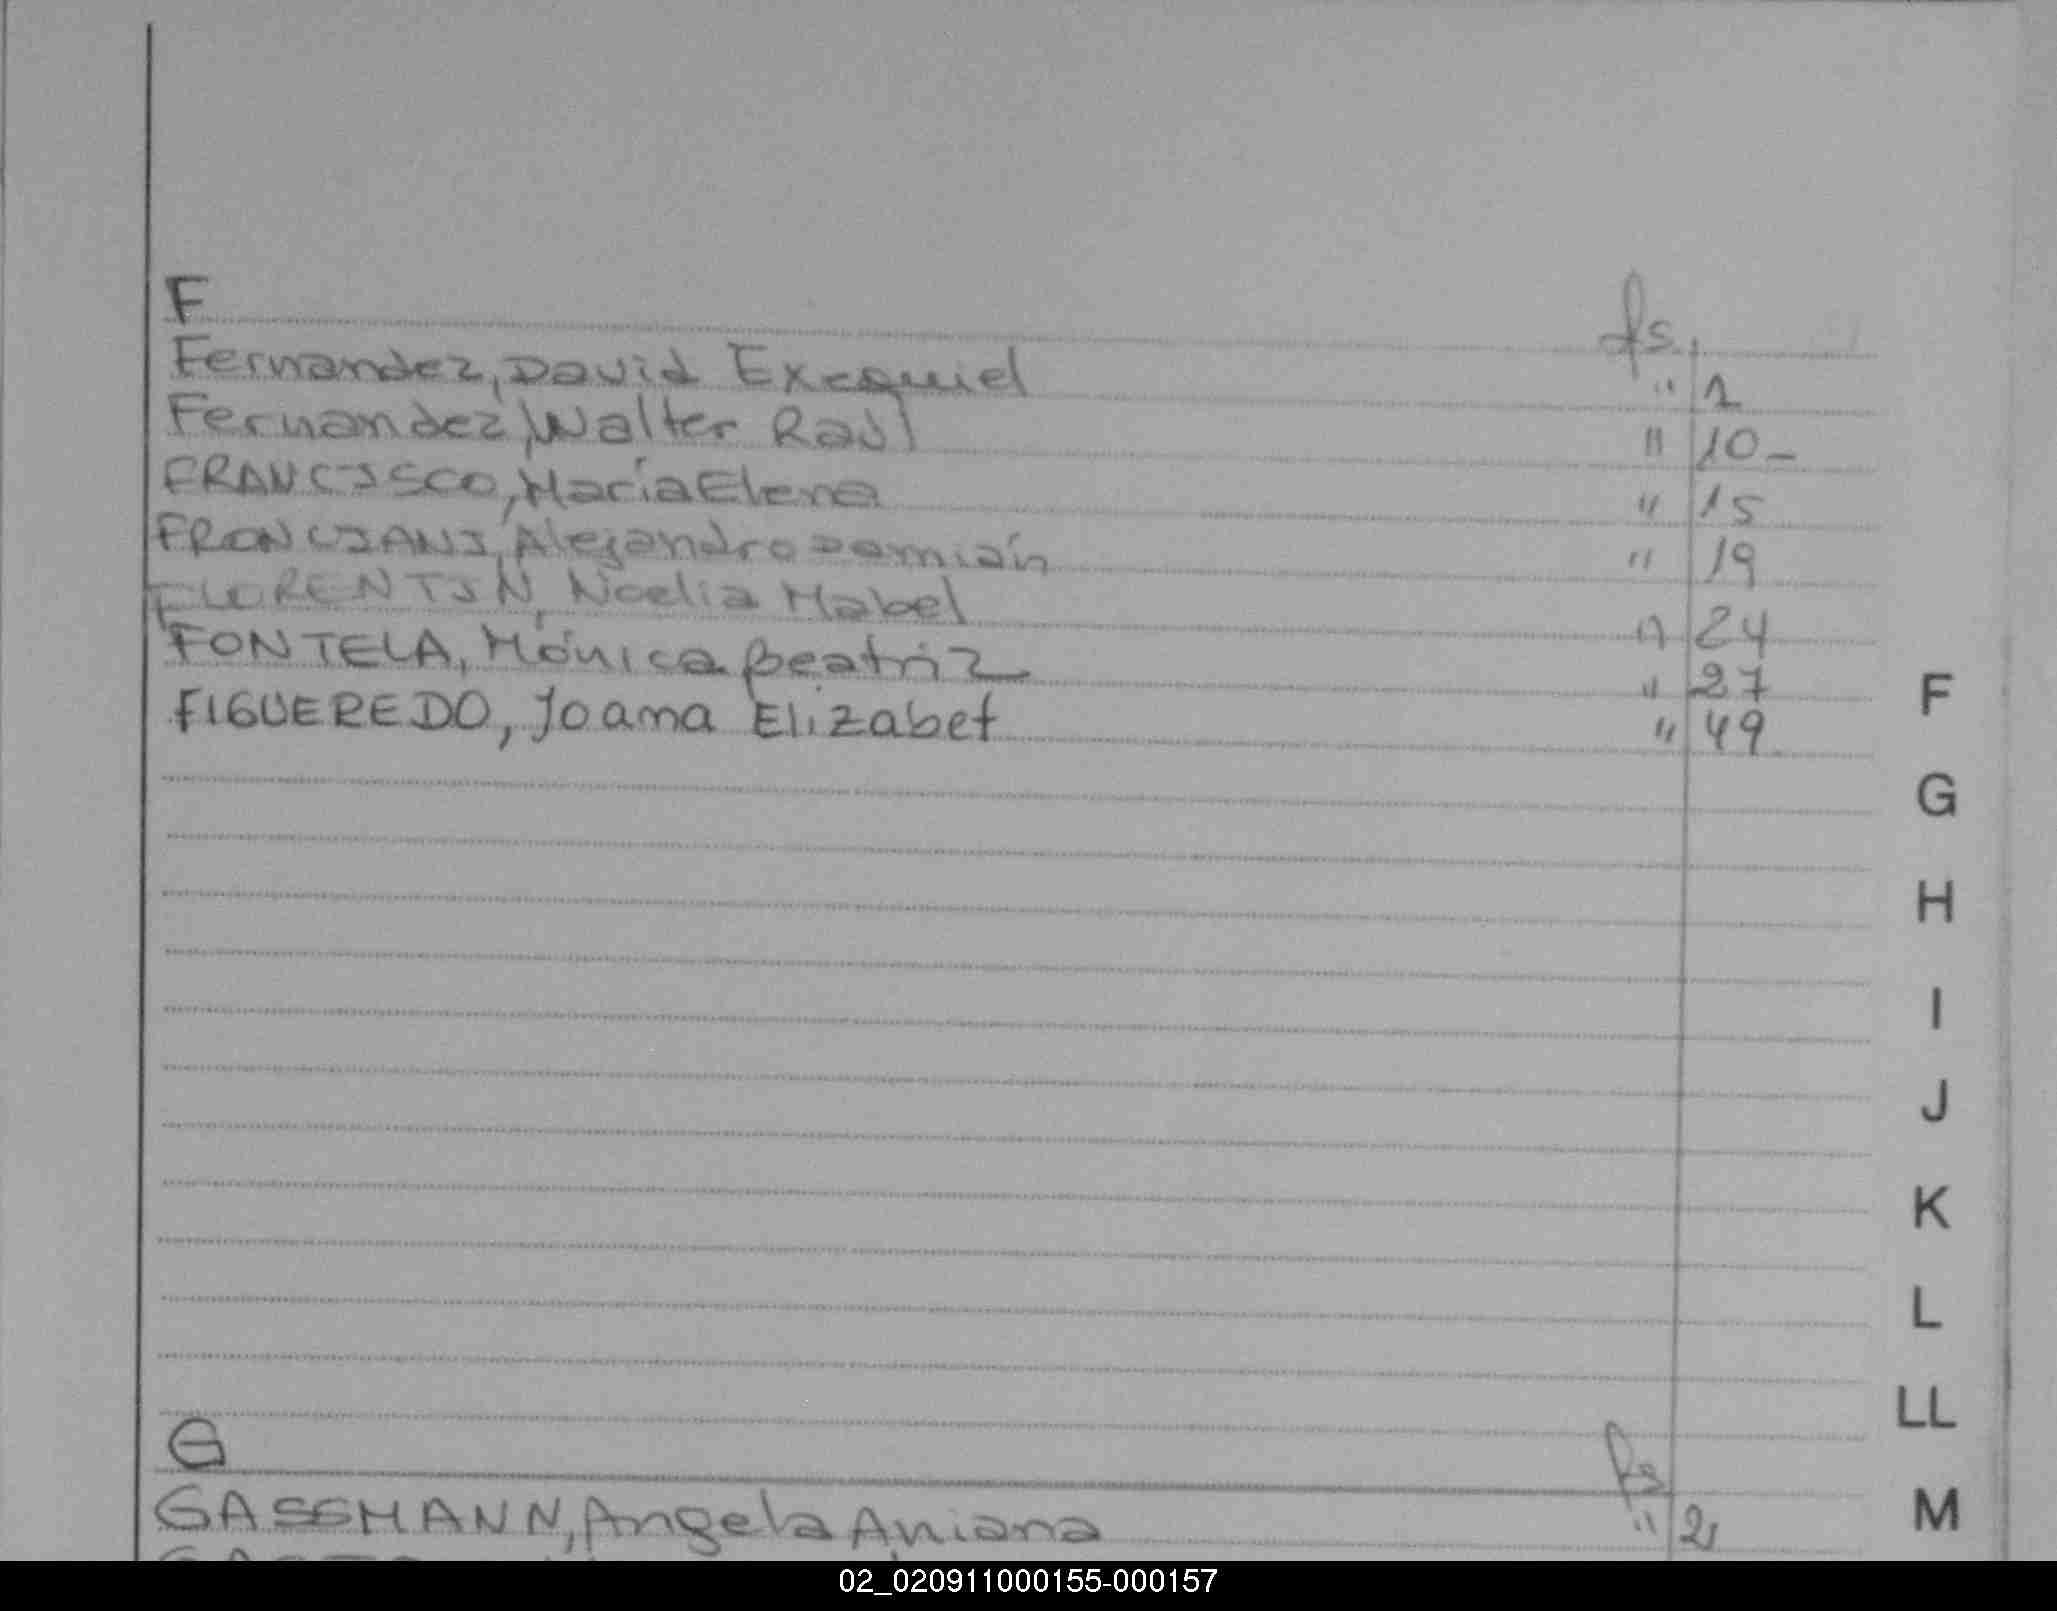 F fs.
Fernandez, David Exequiel " 1
Fernandez, Walter Raúl " 10-
FRANCISCO, María Elena " 15
FRONCIANI, Alejandro Damián " 19
FLORENTIN, Noelia Mabel " 24
FONTELA, Mónica Beatriz " 27
FIGUEREDO, Joana Elizabet " 49
F
G
H
I
J
K
L
LL
M
G fs
GASSMANN, Angela Aniana " 2
02_020911000155-000157